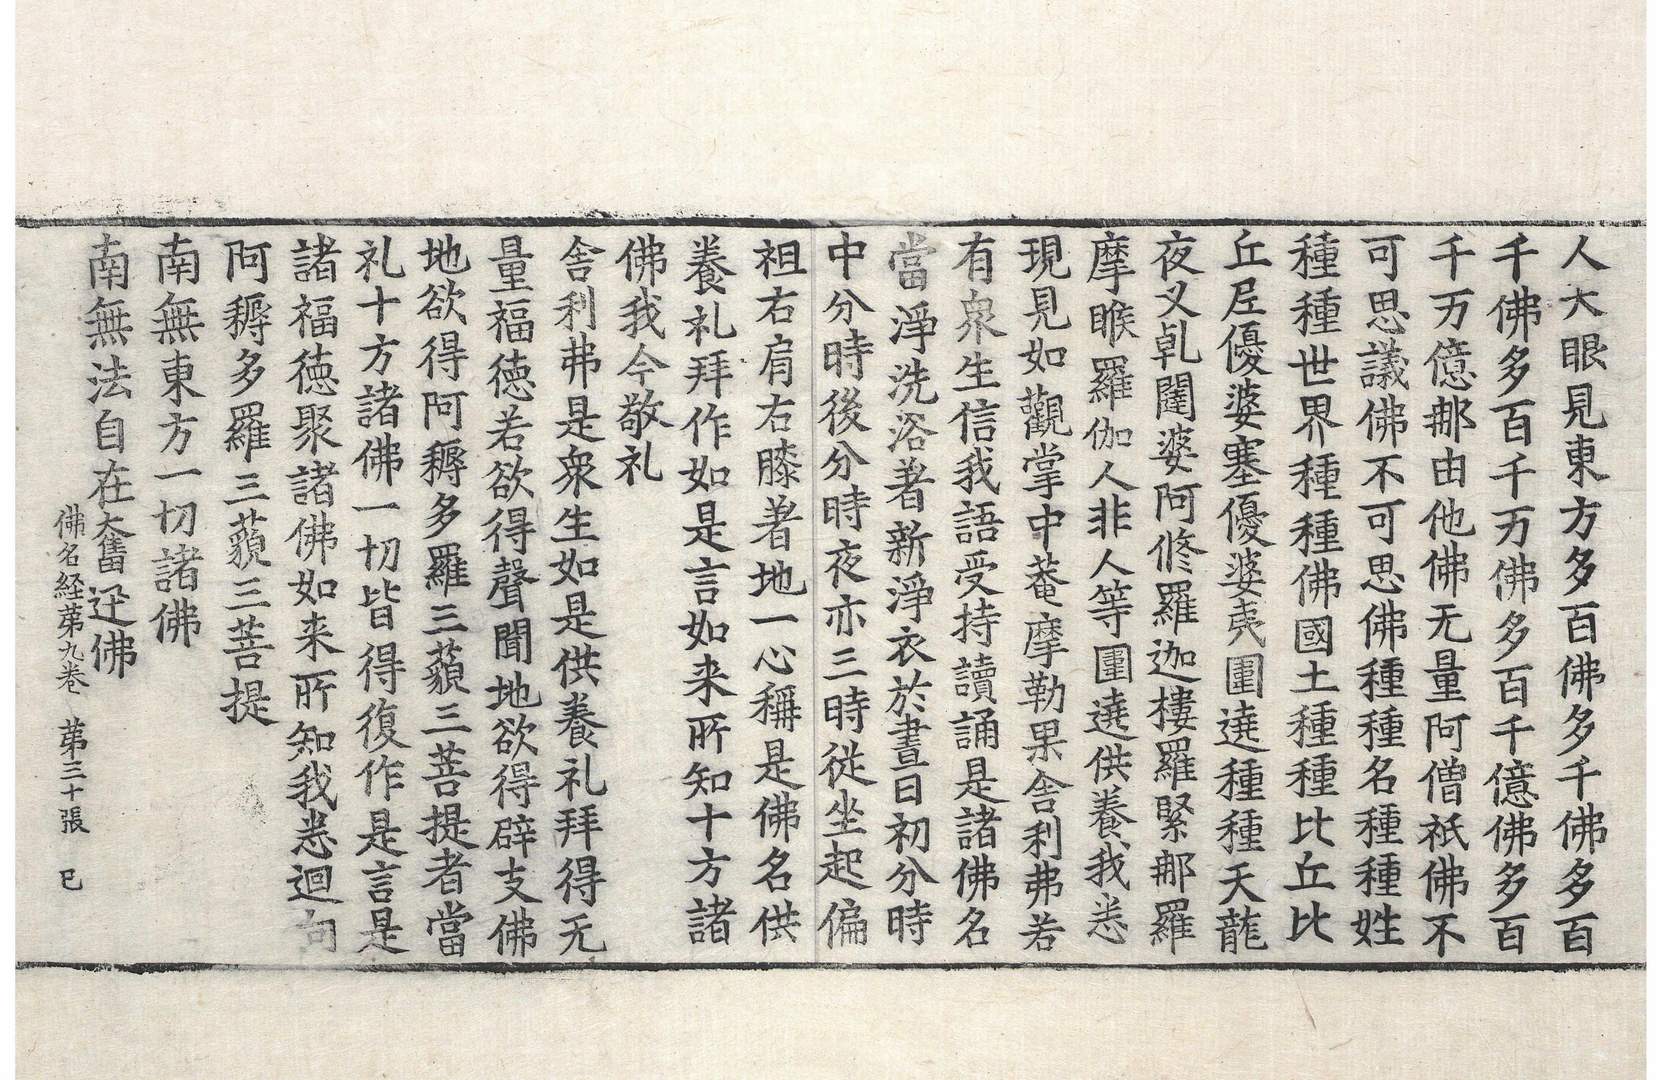 人大眼見東方多百佛多千佛多百
千佛多百千万佛多百千億佛多百
千万億那由他佛无量阿僧祇佛不
可思議佛不可思佛種種名種種姓
種種世界種種佛國土種種比丘比
丘尼優婆塞優婆夷圍遶種種天龍
夜叉乹闥婆阿脩羅迦樓羅緊那羅
摩睺羅伽人非人等圍遶供養我悉
現見如觀掌中菴摩勒果舍利弗若
有衆生信我語受持讀誦是諸佛名
當淨洗浴著新淨衣於晝日初分時
中分時後分時夜亦三時從坐起偏
袒右肩右膝著地一心稱是佛名供
養礼拜作如是言如来所知十方諸
佛我今敬礼
舍利弗是衆生如是供養礼拜得无
量福徳若欲得聲聞地欲得辟支佛
地欲得阿耨多羅三藐三菩提者當
礼十方諸佛一切皆得復作是言是
諸福徳聚諸佛如来所知我悉迴向
阿耨多羅三藐三菩提
南無東方一切諸佛
南無法自在大奮迅佛
佛名経苐九卷　苐三十張　巳